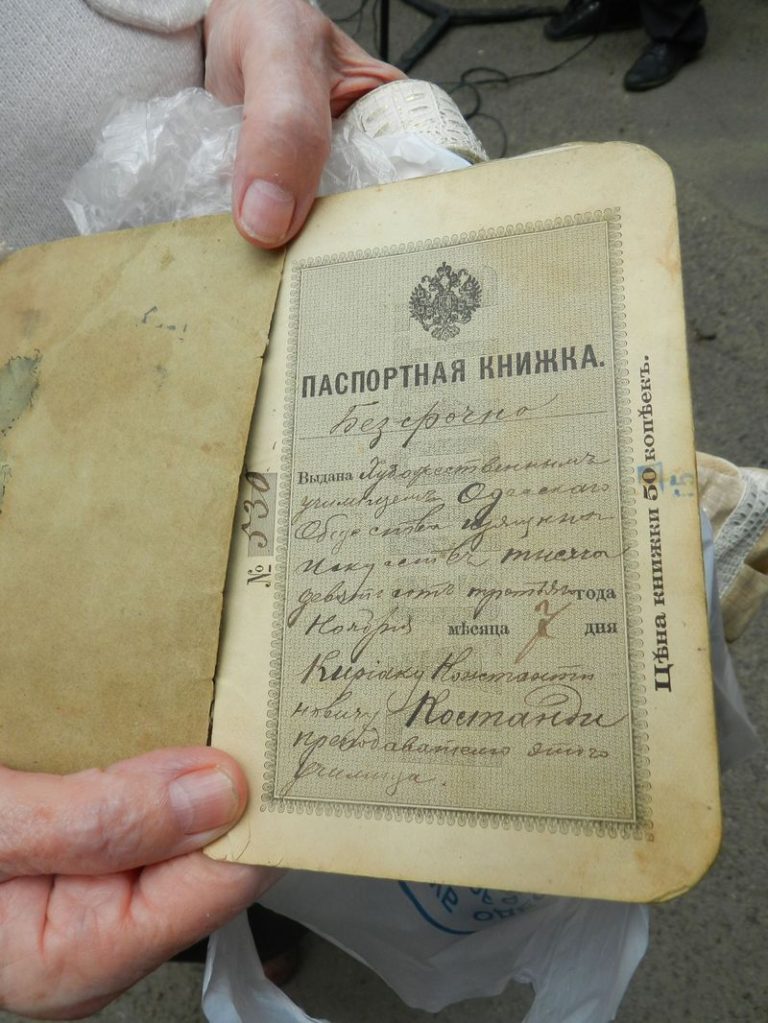 ПАСПОРТНАЯ КНИЖКА.
Безсрочно
Выдана Художественнымъ
училищемъ Одесскаго
Общества изящныхъ
искусствъ тысяча
девятсотъ третьяго года
Ноября мѣсяца 7 дня
Киріаку Константи
новичу Костанди
преподавателю этого
училища.
№ 530
Цѣна книжки 50 копѣекъ.